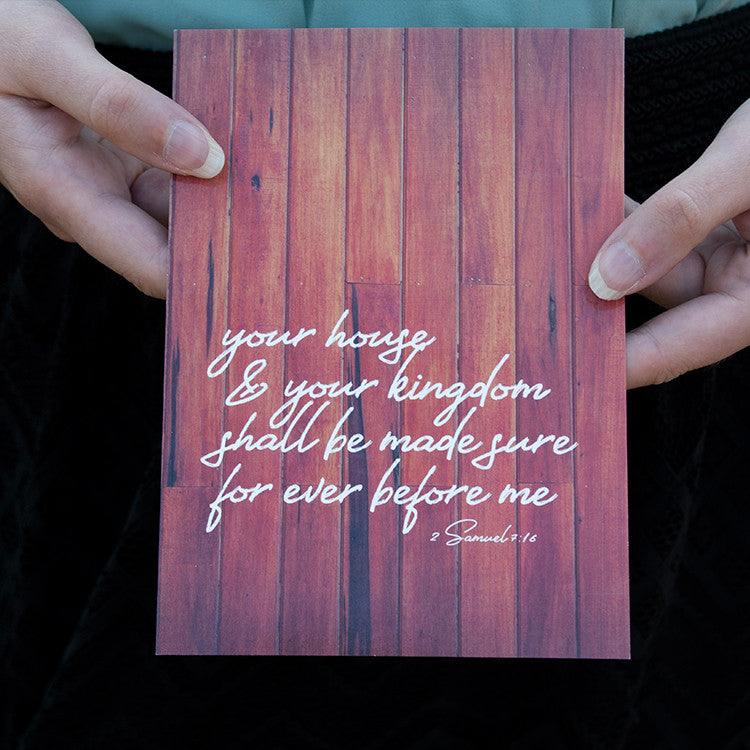 your house
& your kingdom
shall be made sure
for ever before me
2 Samuel 7:16